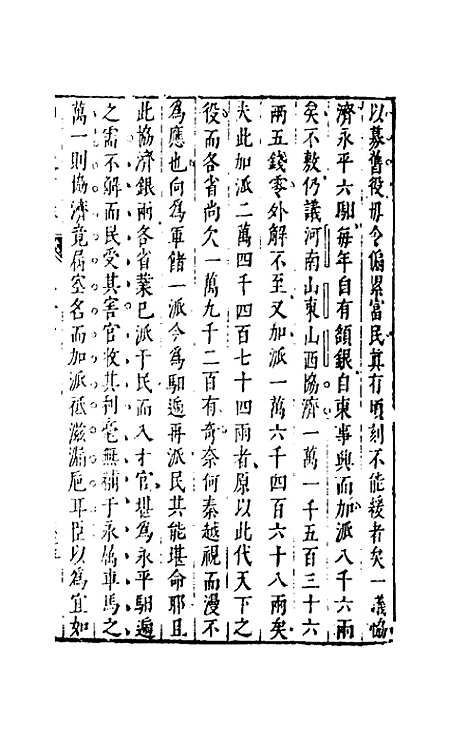 以募舊役毋令偏累富民真有頃刻不能緩者矣一議恊
濟永平六驛每年自有額銀自東事興而加派八千六兩
矣不敷仍議河南山東山西協濟一萬一千五百三十六
兩五錢零外解不至又加派一萬六千四百六十八兩矣
夫此加派二萬四千四百七十四兩者原以此代天下之
役而各省尚欠一萬九千二百有奇奈何秦越視而漫不
為應也向為軍儲一派今為馹逓再派民其能堪命耶且
此協濟銀兩各省業已派于民而入才官堪為永平馹逓
之需不解而民受其害官收其利毫無補于永屬車馬之
萬一則協濟竟屬空名而加派祗滋漏巵耳臣以為宜如